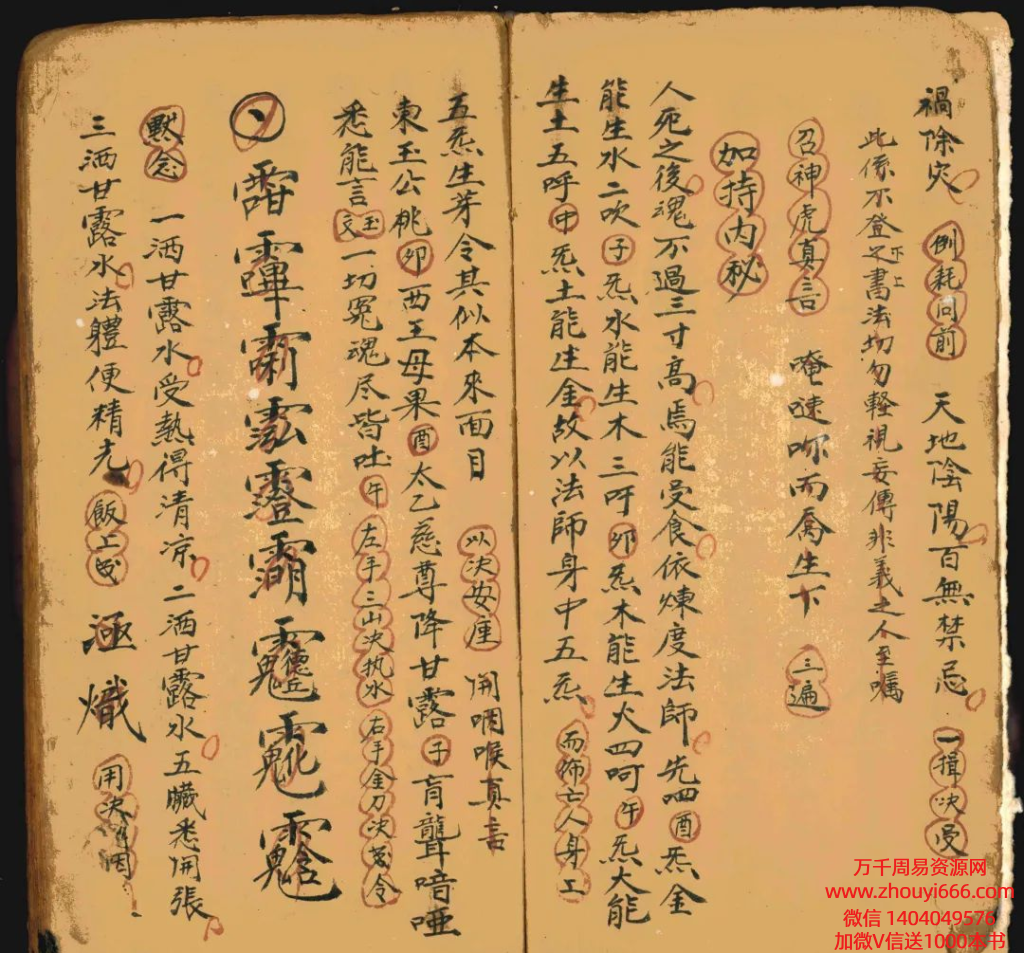 禍除灾 倒耗同前 天地陰陽百無禁忌 一揖决受
此係不登之上下書法切勿輕視妄傳非義之人至嘱
召神虎真言 唵 哪而 生下 三遍
加持内秘
人死之後魂不過三寸高焉能受食依煉度法師先四酉炁金
能生水二吹子炁水能生木三吁卯炁木能生火四呵午炁火能
生土五呼中炁土能生金故以法師身中五炁而佈亡人身上
五炁生芽令其似本來面目 以决安座 開咽喉真言
東王公桃卯西王母果酉太乙慈尊降甘露子盲聾喑啞
悉能言玉文一切冤魂尽皆吐午左手三山决执水右手金刀决令
默念 一洒甘露水受熱得清凉二洒甘露水五臟悉開張
三洒甘露水法體便精光飯上 用决
万千周易资源网
www.zhouyi666.com
微信 1404049576
加微V信送1000本书